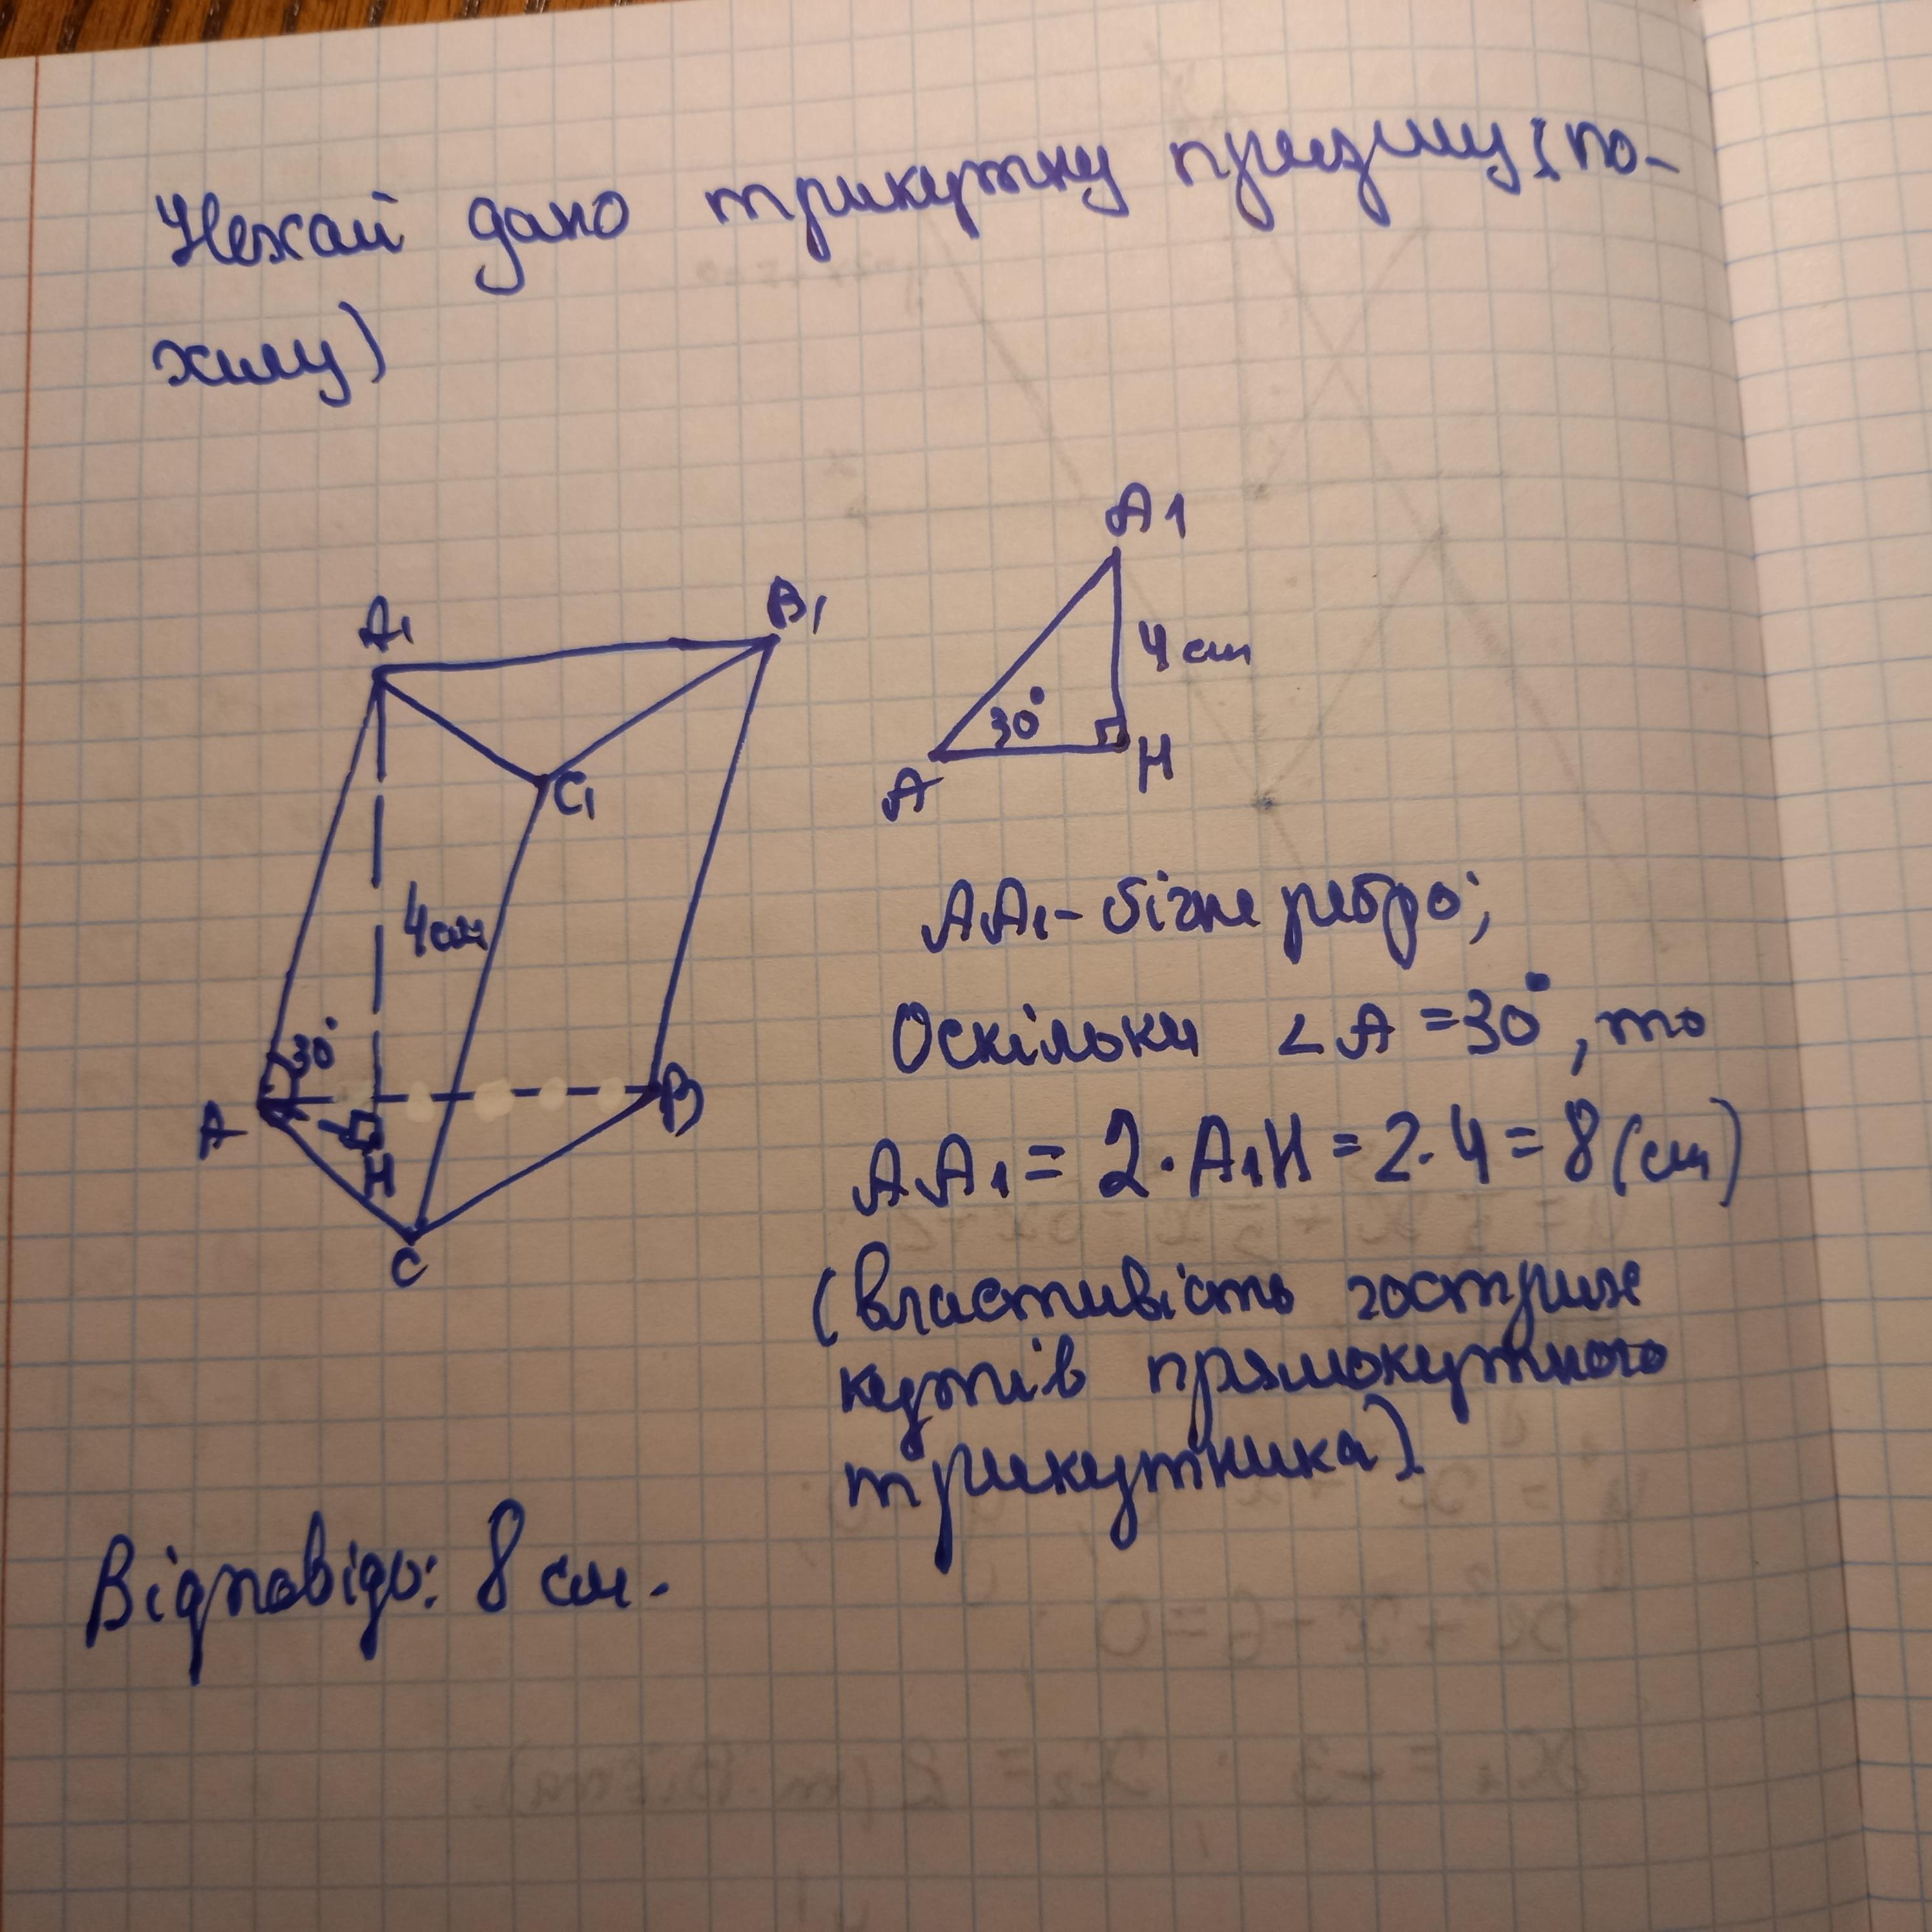 Нехай дано трикутну призму (по-
хилу)
A1
A1
B1
4 см
30°
C1
A
H
4см
AA1 - бічне ребро;
30°
Оскільки ∠A = 30°, то
A
B
H
AA1 = 2·A1H = 2·4 = 8 (см)
C
(властивість гострих
кутів прямокутного
трикутника)
Відповідь: 8 см.